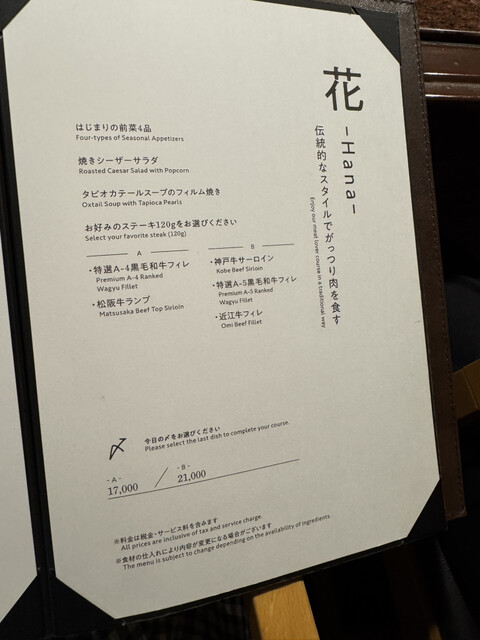 花
-Hana-
伝統的なスタイルでがっつり肉を食す
Enjoy our meat lover course in a traditional way
はじまりの前菜4品
Four-types of Seasonal Appetizers
焼きシーザーサラダ
Roasted Caesar Salad with Popcorn
タピオカテールスープのフィルム焼き
Oxtail Soup with Tapioca Pearls
お好みのステーキ120gをお選びください
Select your favorite steak (120g)
A
・特選A-4黒毛和牛フィレ
Premium A-4 Ranked
Wagyu Fillet
・松阪牛ランプ
Matsusaka Beef Top Sirloin
B
・神戸牛サーロイン
Kobe Beef Sirloin
・特選A-5黒毛和牛フィレ
Premium A-5 Ranked
Wagyu Fillet
・近江牛フィレ
Omi Beef Fillet
〆
今日の〆をお選びください
Please select the last dish to complete your course.
- A -
17,000
- B -
21,000
※料金は税金・サービス料を含みます
All prices are inclusive of tax and service charge.
※食材の仕入れにより内容が変更になる場合がございます
The menu is subject to change depending on the availability of ingredients